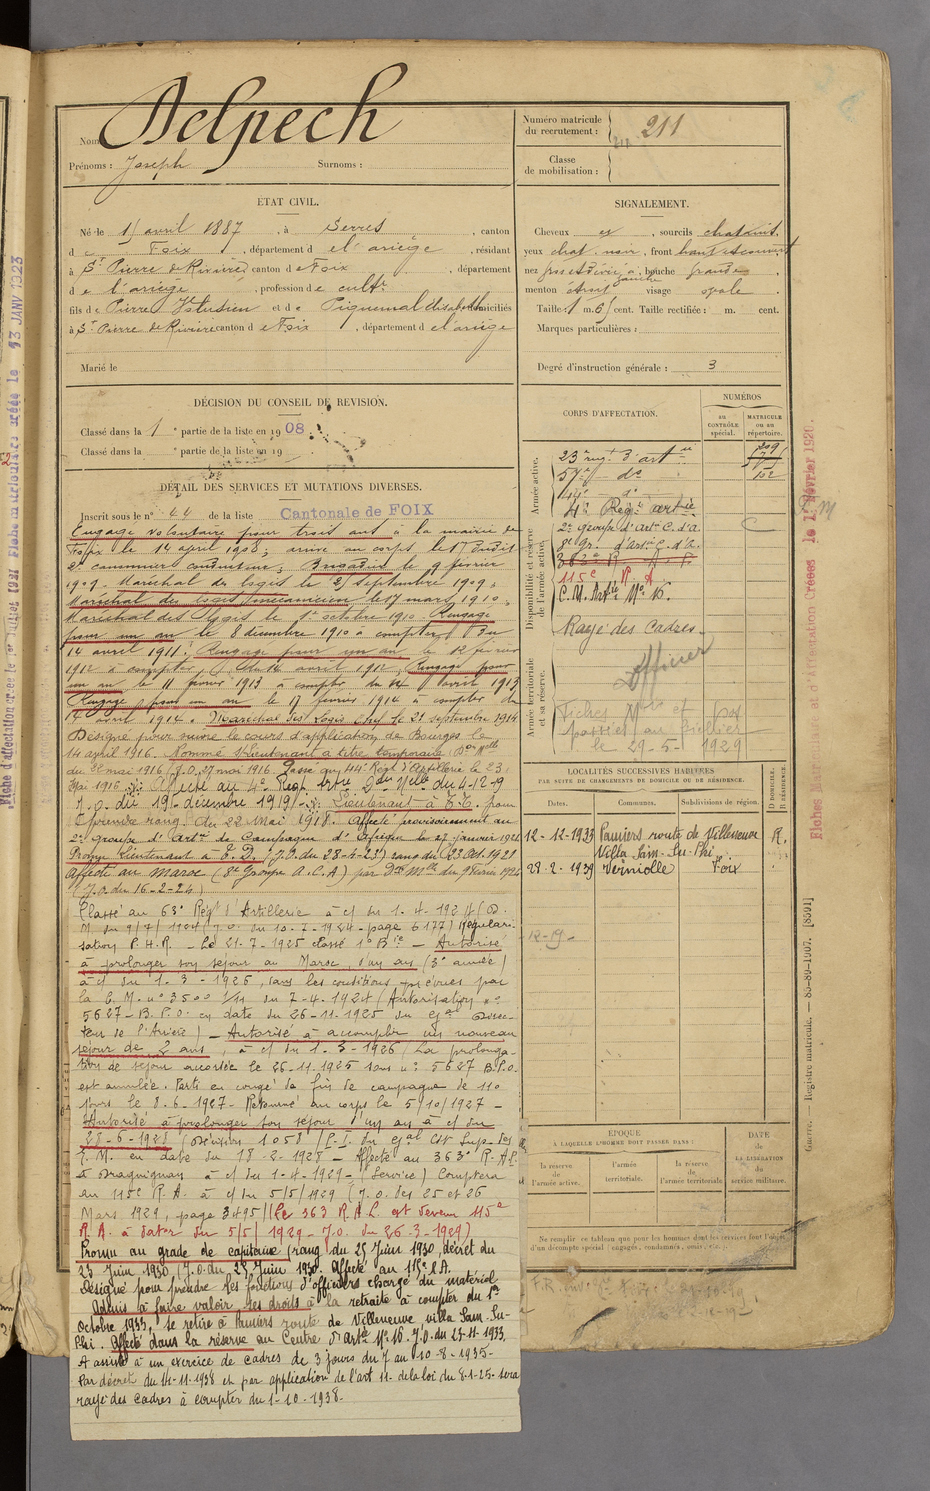 Nom Delpech
Prénoms : Joseph Surnoms :
Numéro matricule du recrutement : 211
Classe de mobilisation :
ETAT CIVIL.
Né le 15 avril 1887, à Serres, canton
d e Foix, département d e l'ariège, résidant
à St Pierre de Rivière, canton d e Foix, département
d e l'ariège, profession d e cultr
fils d e Pierre et d e Piquemal Elisabeth domiciliés
à St Pierre de Rivière canton d e Foix, département d e l'ariège
Marié le
SIGNALEMENT.
Cheveux et, sourcils chatains
yeux chat. noir, front haut découvert
nez gros et dévié à gauche, bouche grande,
menton étroit visage ovale
Taille : 1 m. 65 cent. Taille rectifiée : m. cent.
Marques particulières :
Degré d'instruction générale : 3
DÉCISION DU CONSEIL DE REVISION.
Classé dans la 1e partie de la liste en 1908
Classé dans la e partie de la liste en 19
DÉTAIL DES SERVICES ET MUTATIONS DIVERSES.
Inscrit sous le n° 44 de la liste Cantonale de FOIX
Engagé volontaire pour trois ans à la mairie de
Foix le 14 avril 1908; arrivé au corps le 17 dudit
2e canonnier conducteur; Brigadier le 9 février
1909. Maréchal des logis le 25 septembre 1909.
Maréchal des logis mécanicien le 17 mars 1910.
Maréchal des Logis le 1er octobre 1910. Rengagé
pour un an le 8 décembre 1910 à compter du
14 avril 1911. Rengagé pour un an le 12 février
1912 à compter du 14 avril 1912. Rengagé pour
un an le 11 février 1913 à compter du 14 avril 1913
Rengagé pour un an le 17 février 1914 à compter du
14 avril 1914. Maréchal des Logis Chef le 21 septembre 1914
Désigné pour suivre le cours d'application de Bourges le
14 avril 1916. Nommé S/Lieutenant à titre temporaire (Don Melle
du 22 mai 1916 J.O. 27 mai 1916. Passé au 44e Régt d'Artillerie le 23
Mai 1916. Affecté au 4e Régt Artie Don Melle du 4-12-19
J.O. du 19-décembre 1919. Lieutenant à T.T. pour
prendre rang du 22 mai 1918. Affecté provisoirement au
2e groupe d'Artie de Campagne d'Afrique le 27 janvier 1921
Promu Lieutenant à T.D. (J.O. du 23-6-23) rang du (23 Oct. 1921
Affecté au Maroc (8e Groupe A.C.A) par Don Mlle du 9 février 1924
(J.O. du 16-2-24)
Classé au 63e Régt d'Artillerie à c/ du 1-4-1924 (D.
M. du 9/7/1924 (J.O. du 10-7-1924-page 6177) Régulari-
sation P.H.R. - Le 21-7-1925 classé 1° Bie - Autorisé
à prolonger son séjour au Maroc, d'un an (3e année)
à c/ du 1-3-1926, dans les conditions prévues par
la C.M. n° 3500 1/11 du 7-4-1924 (Autorisation n°
5627-B.P.O. en date du 26-11-1925 du Gal Direc-
teur de l'Arrière) - Autorisé à accomplir un nouveau
séjour de 2 ans, à c/ du 1-3-1926 (La prolonga-
tion de séjour accordée le 26-11-1925 sous n° 5627 B.P.O.
est annulée. Parti en congé de fin de campagne de 110
jours le 8-6-1927 - Retourné au corps le 5/10/1927 -
Autorisé à prolonger son séjour d'un an à c/ du
28-6-1928 (Décision 1058 /P.I. du Gal Ct Sup. des
T.M. en date du 18-2-1928 - Affecté au 363e R.A.L.
à Draguignan à c/ du 1-4-1929 - (Service) Comptera
au 115e R.A. à c/ du 5/5/1929 (J.O. des 25 et 26
Mars 1929, page 3495) (Le 363 R.A.L. est devenu 115e
R.A. à dater du 5/5/1929 - J.O. du 26-3-1929)
Promu au grade de capitaine (rang du 25 Juin 1930, décret du
23 Juin 1930 (J.O. du 25 Juin 1930. Affecté au 115e R.A.
Désigné pour prendre les fonctions d'officier chargé du matériel
Admis à faire valoir ses droits à la retraite à compter du 1er
octobre 1933, se retire à Pamiers route de Villeneuve villa Sam-Su-
Phi. Affecté dans la réserve au Centre d'Artie N° 16. J.O. du 23-11-1933.
A assisté à un exercice de cadres de 3 jours du 7 au 10-8-1935-
Par décret du 14-11-1938 et par application de l'art 11 de la loi du 8-1-25- sera
rayé des cadres à compter du 1-10-1938.
CORPS D'AFFECTATION.
NUMÉROS
au CONTRÔLE spécial.
MATRICULE ou au répertoire.
Armée active.
23e régt d'artie 209
57e do 102
44e do
4e Régt artie
Disponibilité et réserve de l'armée active.
2e groupe d'artie C. d'A. C
8e Gr. d'artie C. d'A.
363e R.A.L.
115e R.A.
C.M. Artie No 16.
Rayé des Cadres.
Armée territoriale et sa réserve.
Officier
Fiches Mles et pos
parties au Fichier
le 29-5-1929
LOCALITÉS SUCCESSIVES HABITÉES
PAR SUITE DE CHANGEMENTS DE DOMICILE OU DE RÉSIDENCE.
Dates. Communes. Subdivisions de région. D DOMICILE. R RÉSIDENCE.
12-12-1933 Pamiers route de Villeneuve R.
Villa Sam-Su-Phi
28-2-1939 Verniolle Foix
12-19-
ÉPOQUE
À LAQUELLE L'HOMME DOIT PASSER DANS :
la réserve de l'armée active.
l'armée territoriale.
la réserve de l'armée territoriale
DATE de LA LIBÉRATION du service militaire.
Ne remplir ce tableau que pour les hommes dont les services font l'objet
d'un décompte spécial (engagés, condamnés, omis, etc.).
Fiches Matricule et d'Affectation Créées le 1 Février 1920.
Guerre. — Registre matricule. — 85-89-1907. [8591]
Fiche d'affectation créée le 1er Juillet 1921 Fiche matriculaire créée le 13 JANV 1923